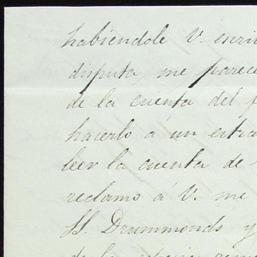 habiendole V. envi
disputa, me parece
de la cuenta del
hacerlo á un estra
leer la cuenta de
reclamo á V. me
SS. Drummonds y